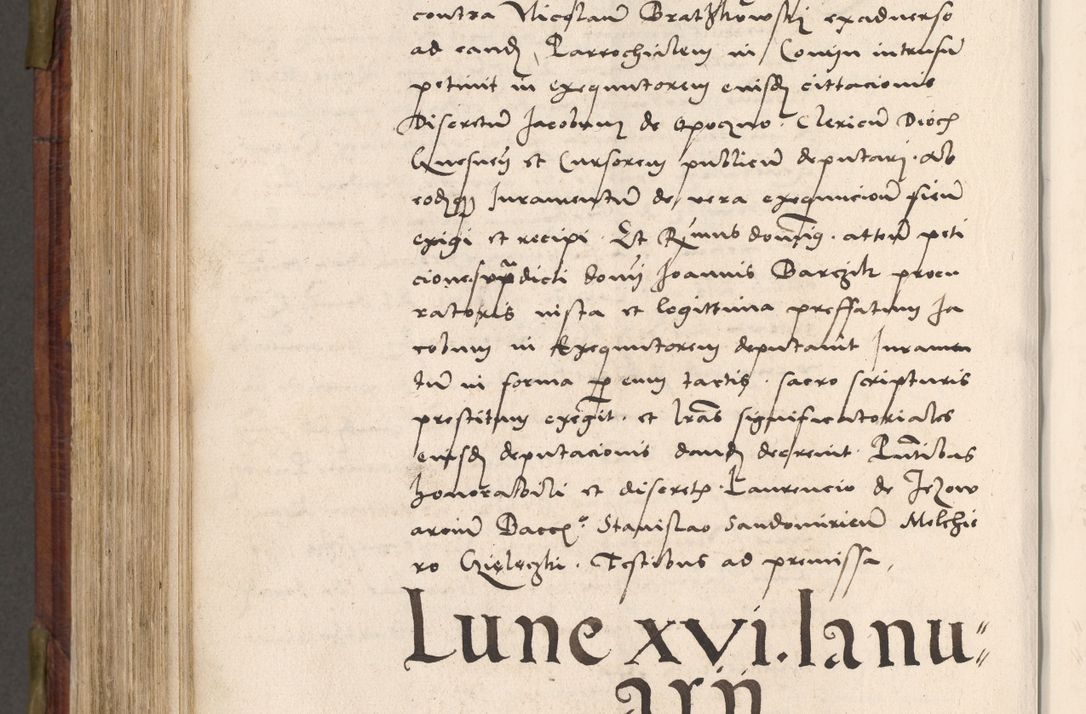 contra Nicolaum Bratkkowskj ex aduerso
ad eand Parrochialem in Conijn intrusu
petiuit in exequutorem euisd cittacionis
Discretu Jacobum de Opoczno Clericu Dioc
Gnesnen et Cursorem publicu deputarj Ab
eodq Juramentu de vera exequucion fieu
exigi et recipi Et Rmus domis atteu peti
cione supradicti domj Joannis Barczik procu
ratoris iusta et legittima preffatum Ja
cobum in Exequutorem deputauit Juramen
tu in forma per eum tactis sacro scripturis
prestitum exegit et lras significatoriales
euisd deputacionis dand decreuit Pntibus
honorabili et discretis Laurencio de Jezow
arciu Bacce Stanislao Sandomirien Melchio
ro Gzieleczki Testibus ad premissa
Lune xvi. Ianu
arij